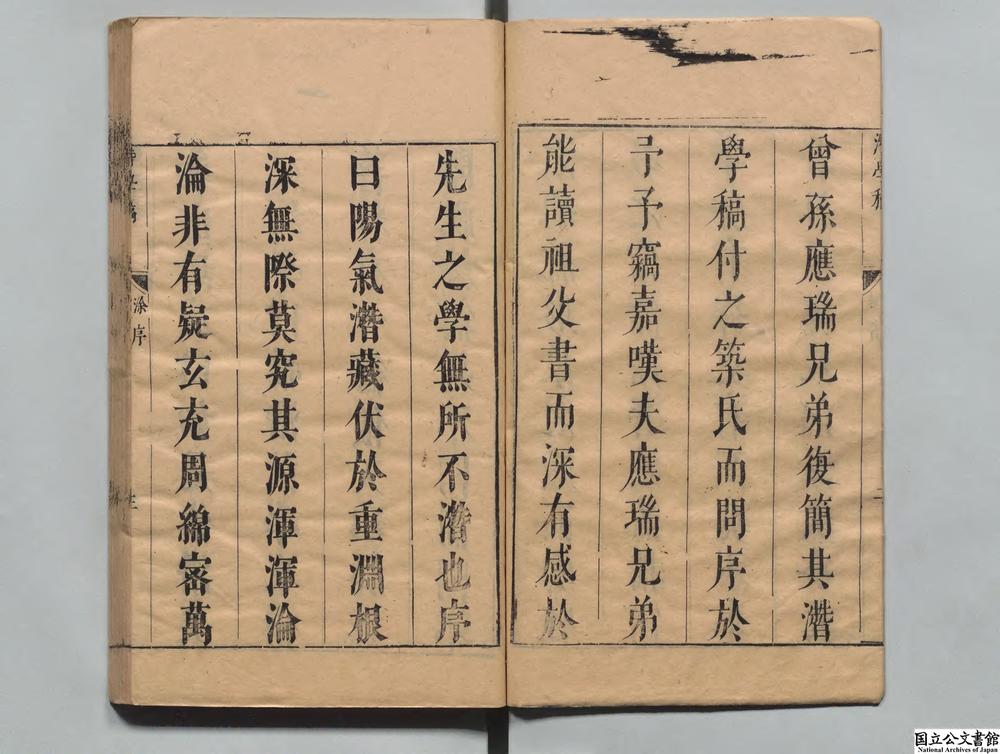 曾孫應瑞兄弟復簡其潛
學稿付之築氏而問序於
予予竊嘉嘆夫應瑞兄弟
能讀祖父書而深有感於
先生之學無所不潛也序
曰陽氣潛藏伏於重淵根
深無際莫究其源渾渾淪
淪非有疑玄充周綿密萬
涂序
国立公文書館
National Archives of Japan